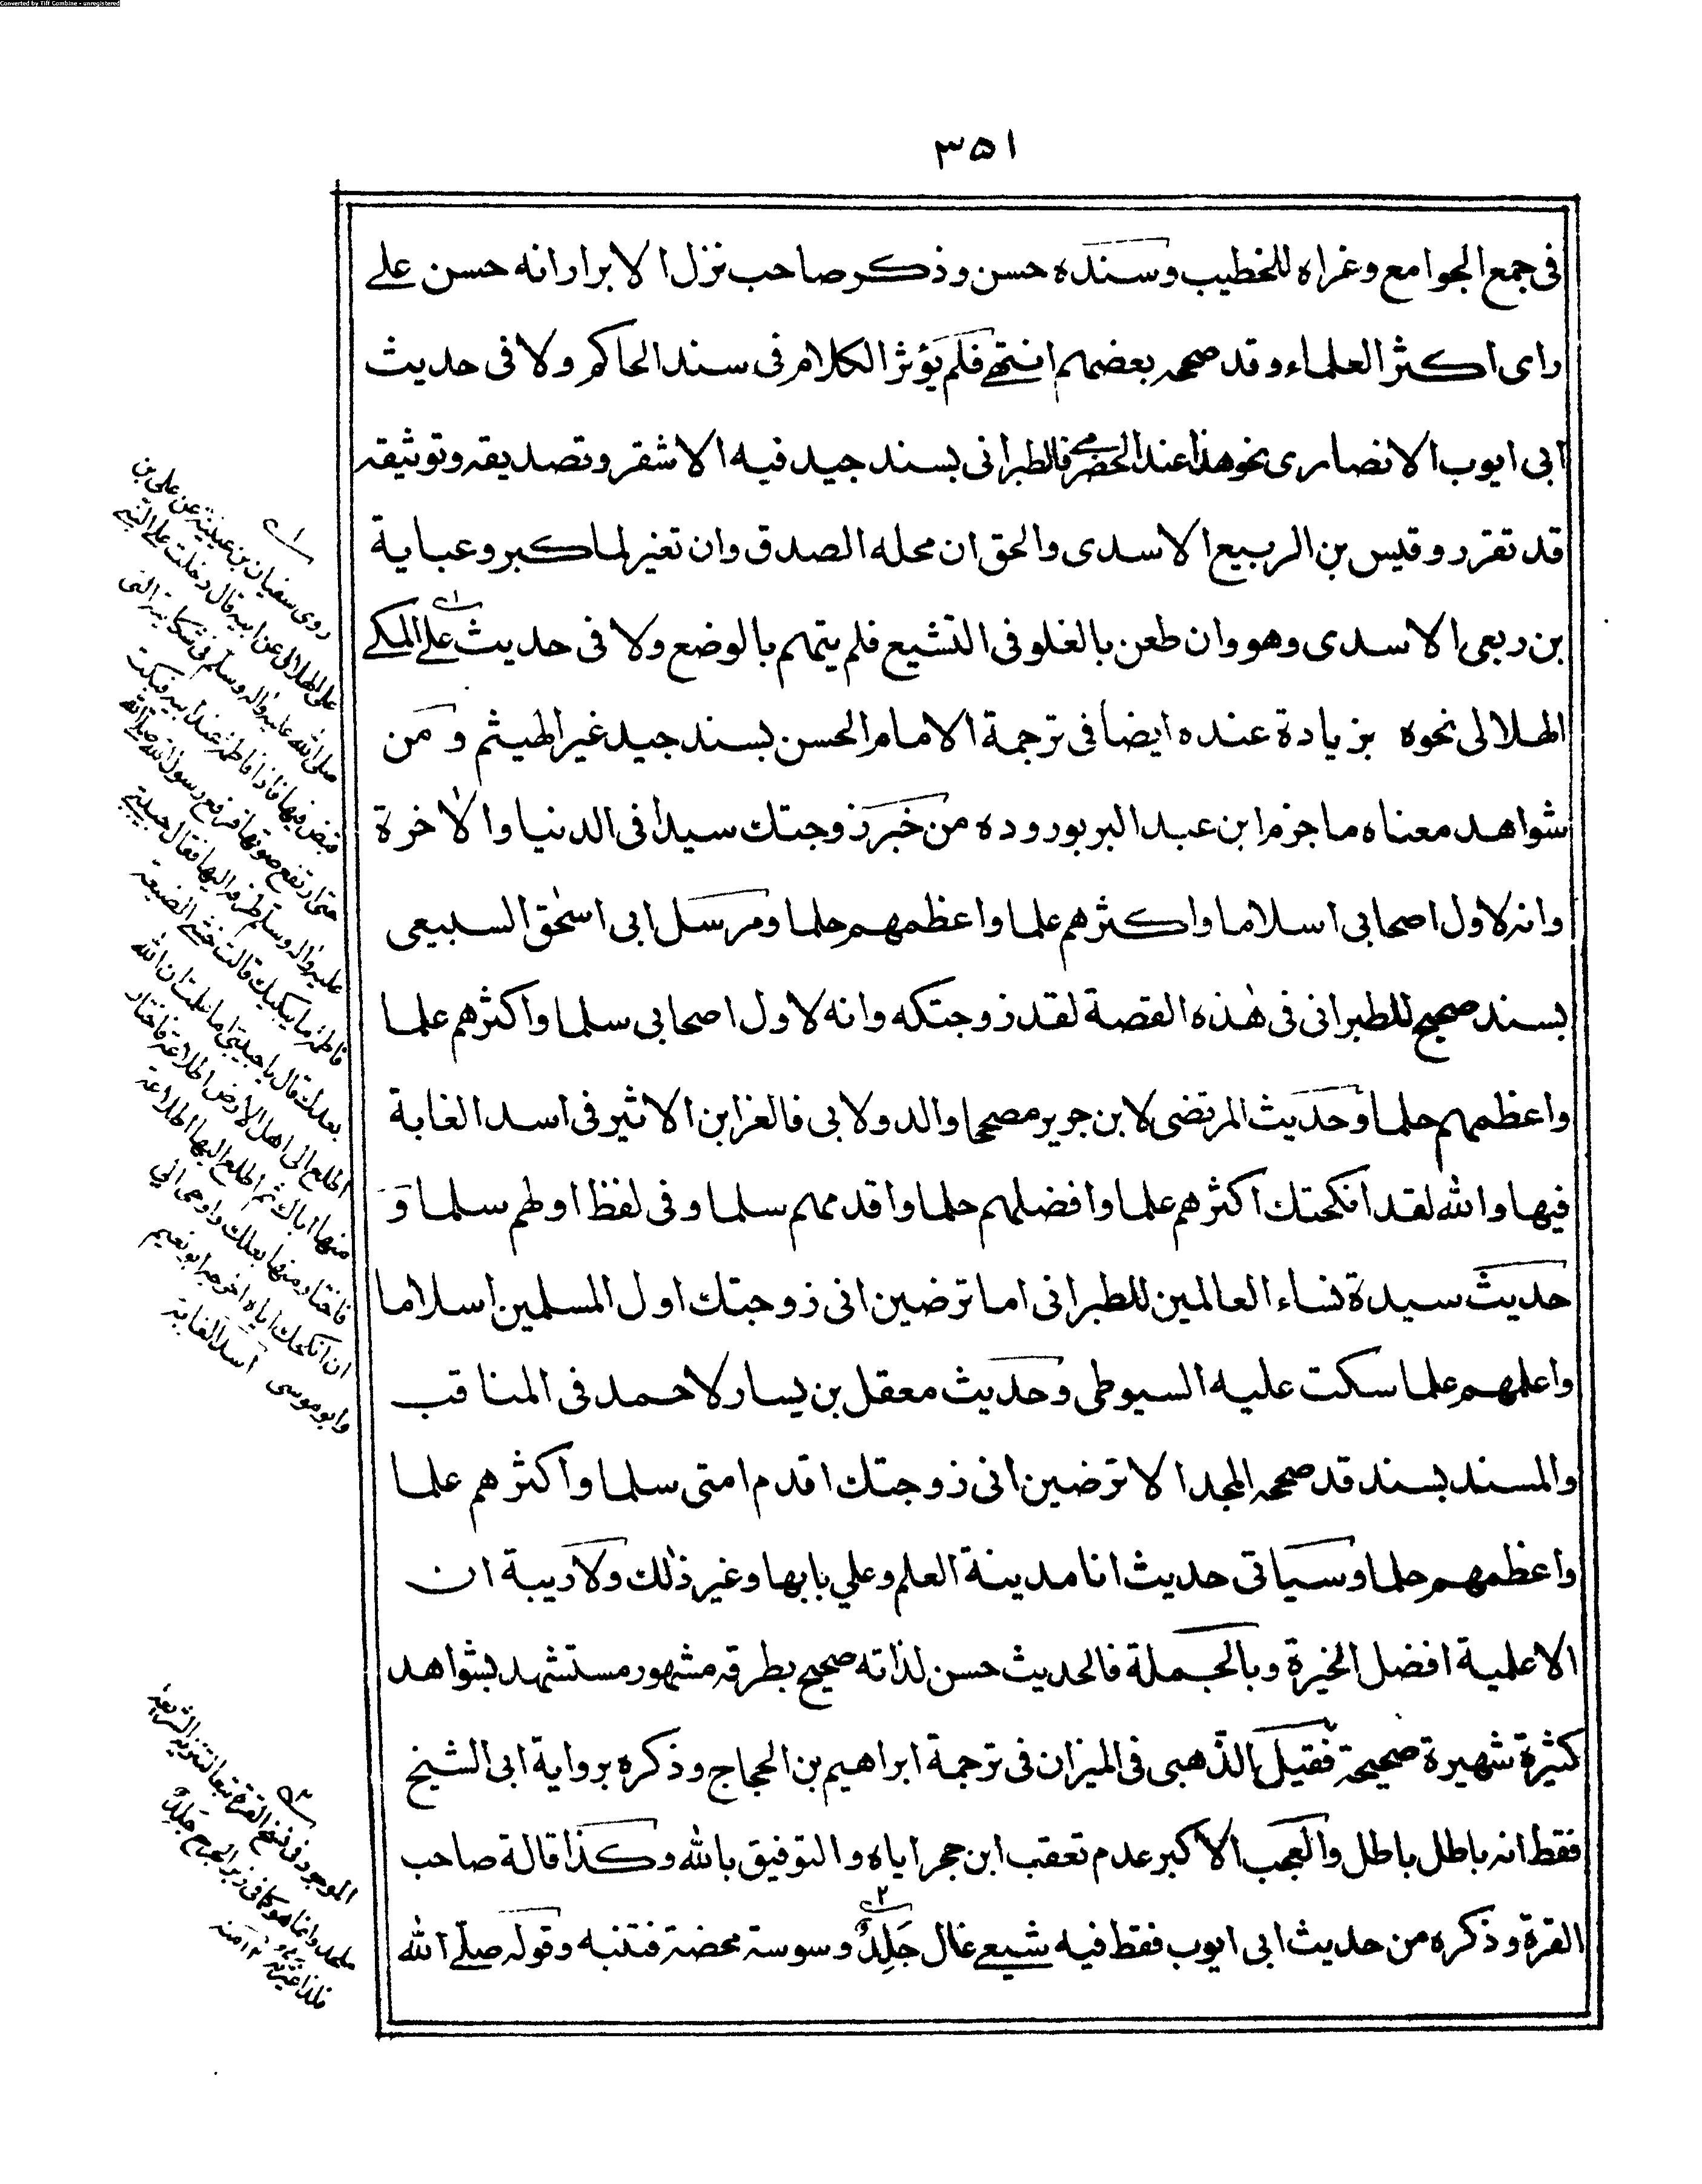 Converted by Tiff Combine - unregistered
٣٥١
فى جمع الجوامع وغراه للخطيب وسنده حسن وذكر صاحب نزل الابرار انه حسن على
راى اكثر العلماء وقد صححه بعضهم انتهى فلم يؤثر الكلام فى سند الحاكم ولا فى حديث
ابى ايوب الانصارى نحو هذا عند الحضرمى فالطبرانى بسند جيد فيه الاشقر وتصديقه وتوثيقه
قد تقرر وقيس بن الربيع الاسدى والحق ان محله الصدق وان تغير لما كبر وعباية
بن ربعى الاسدى وهو وان طعن بالغلو فى التشيع فلم يتهم بالوضع ولا فى حديث على المكے
الهلالى نحوه بزيادة عنده ايضا فى ترجمة الامام الحسن بسند جيد غير الهيثم ومن
شواهد معناه ما جزم ابن عبد البر بوروده من خبر زوجتك سيدا فى الدنيا والاخرة
وانه لاول اصحابى اسلاما واكثرهم علما واعظمهم حلما ومرسل ابى اسحٰق السبيعى
بسند صحيح للطبرانى فى هٰذه القصة لقد زوجتكه وانه لاول اصحابى سلما واكثرهم علما
واعظمهم حلما وحديث المرتضى لابن جرير مصححا والدولابى فالعز ابن الاثير فى اسد الغابة
فيها والله لقد انكحتك اكثرهم علما وافضلهم حلما واقدمهم سلما وفى لفظ اولهم سلما و
حديث سيدة نساء العالمين للطبرانى اما ترضين انى زوجتك اول المسلمين اسلاما
واعلمهم علما سكت عليه السيوطى وحديث معقل بن يسار لاحمد فى المناقب
والمسند بسند قد صححه المجد الا ترضين انى زوجتك اقدم امتى سلما واكثرهم علما
واعظمهم حلما وسياتى حديث انا مدينة العلم وعلي بابها وغير ذٰلك ولا ريبة ان
الاعلمية افضل الخيرة وبالجملة فالحديث حسن لذاته صحيح بطرقه مشهور مستشهد بشواهد
كثيرة شهيرة صحيحة فقيل الذهبى فى الميزان فى ترجمة ابراهيم بن الحجاج وذكره برواية ابى الشيخ
فقط انه باطل باطل والعجب الاكبر عدم تعقب ابن حجر اياه والتوفيق بالله وكذا قالة صاحب
القرة وذكره من حديث ابى ايوب فقط فيه شيعے غال جَلِدٌ ٢ وسوسة محضة فتنبه وقوله صلّے الله
١
روى سفيان بن عيينة عن على بن
على الهلالى عن ابيه قال دخلت على النبے
صلى الله عليه واٰله وسلم فى شكايته التى
قبض فيها فاذا فاطمة عند ابيه فبكت
حتى ارتفع صوتها فرفع رسول الله صلے الله
عليه واٰله وسلم طرفه اليها فقال حبيبتے
فاطمة ما يبكيك قالت خشے الضيعة
بعدك قال يا حبيبتى اما علمت ان الله
اطلع الى اهل الارض اطلاعة فاختار
منها اباك ثم اطلع اليها اطلاعة
فاختار منها بعلك واوحى الي
ان انكحك اياه اخرجه ابو نعيم
وابو موسى اسد الغابة
٢
الموجود فى نسخ القرة تبعا لتنزيه الشريعة
ملحد وانما هو كما فى زبر الجرح جَلِدٌ
١٢ منه